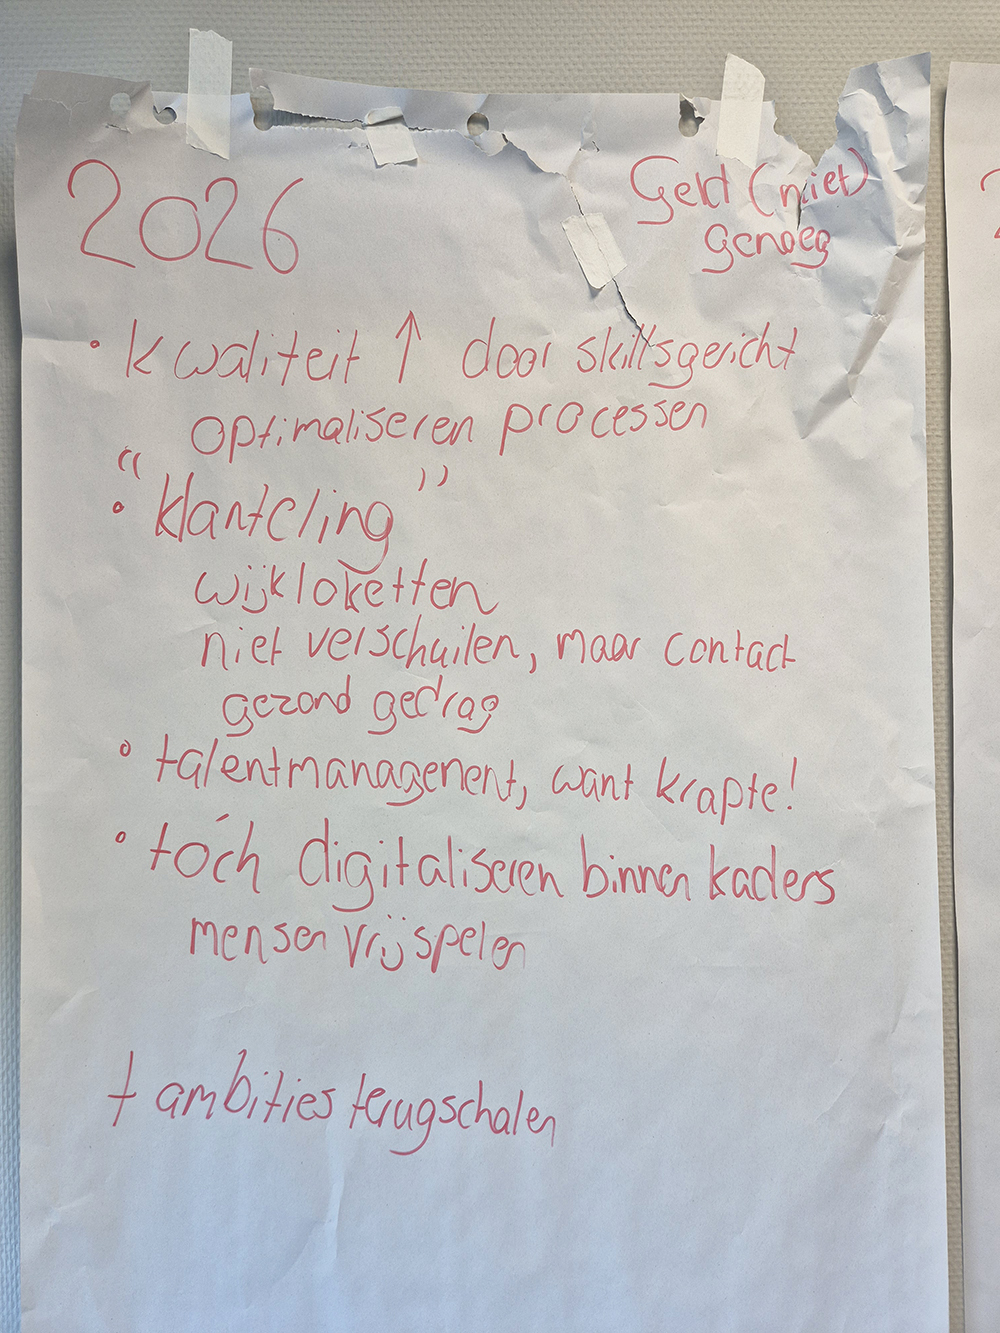 2026
Geld (niet)
genoeg
• kwaliteit ↑ door skillsgericht
optimaliseren processen
• "klanteling"
wijkloketten
niet verschuilen, maar contact
gezond gedrag
• talentmanagement, want krapte!
• tóch digitaliseren binnen kaders
mensen vrijspelen
+ ambities terugschalen